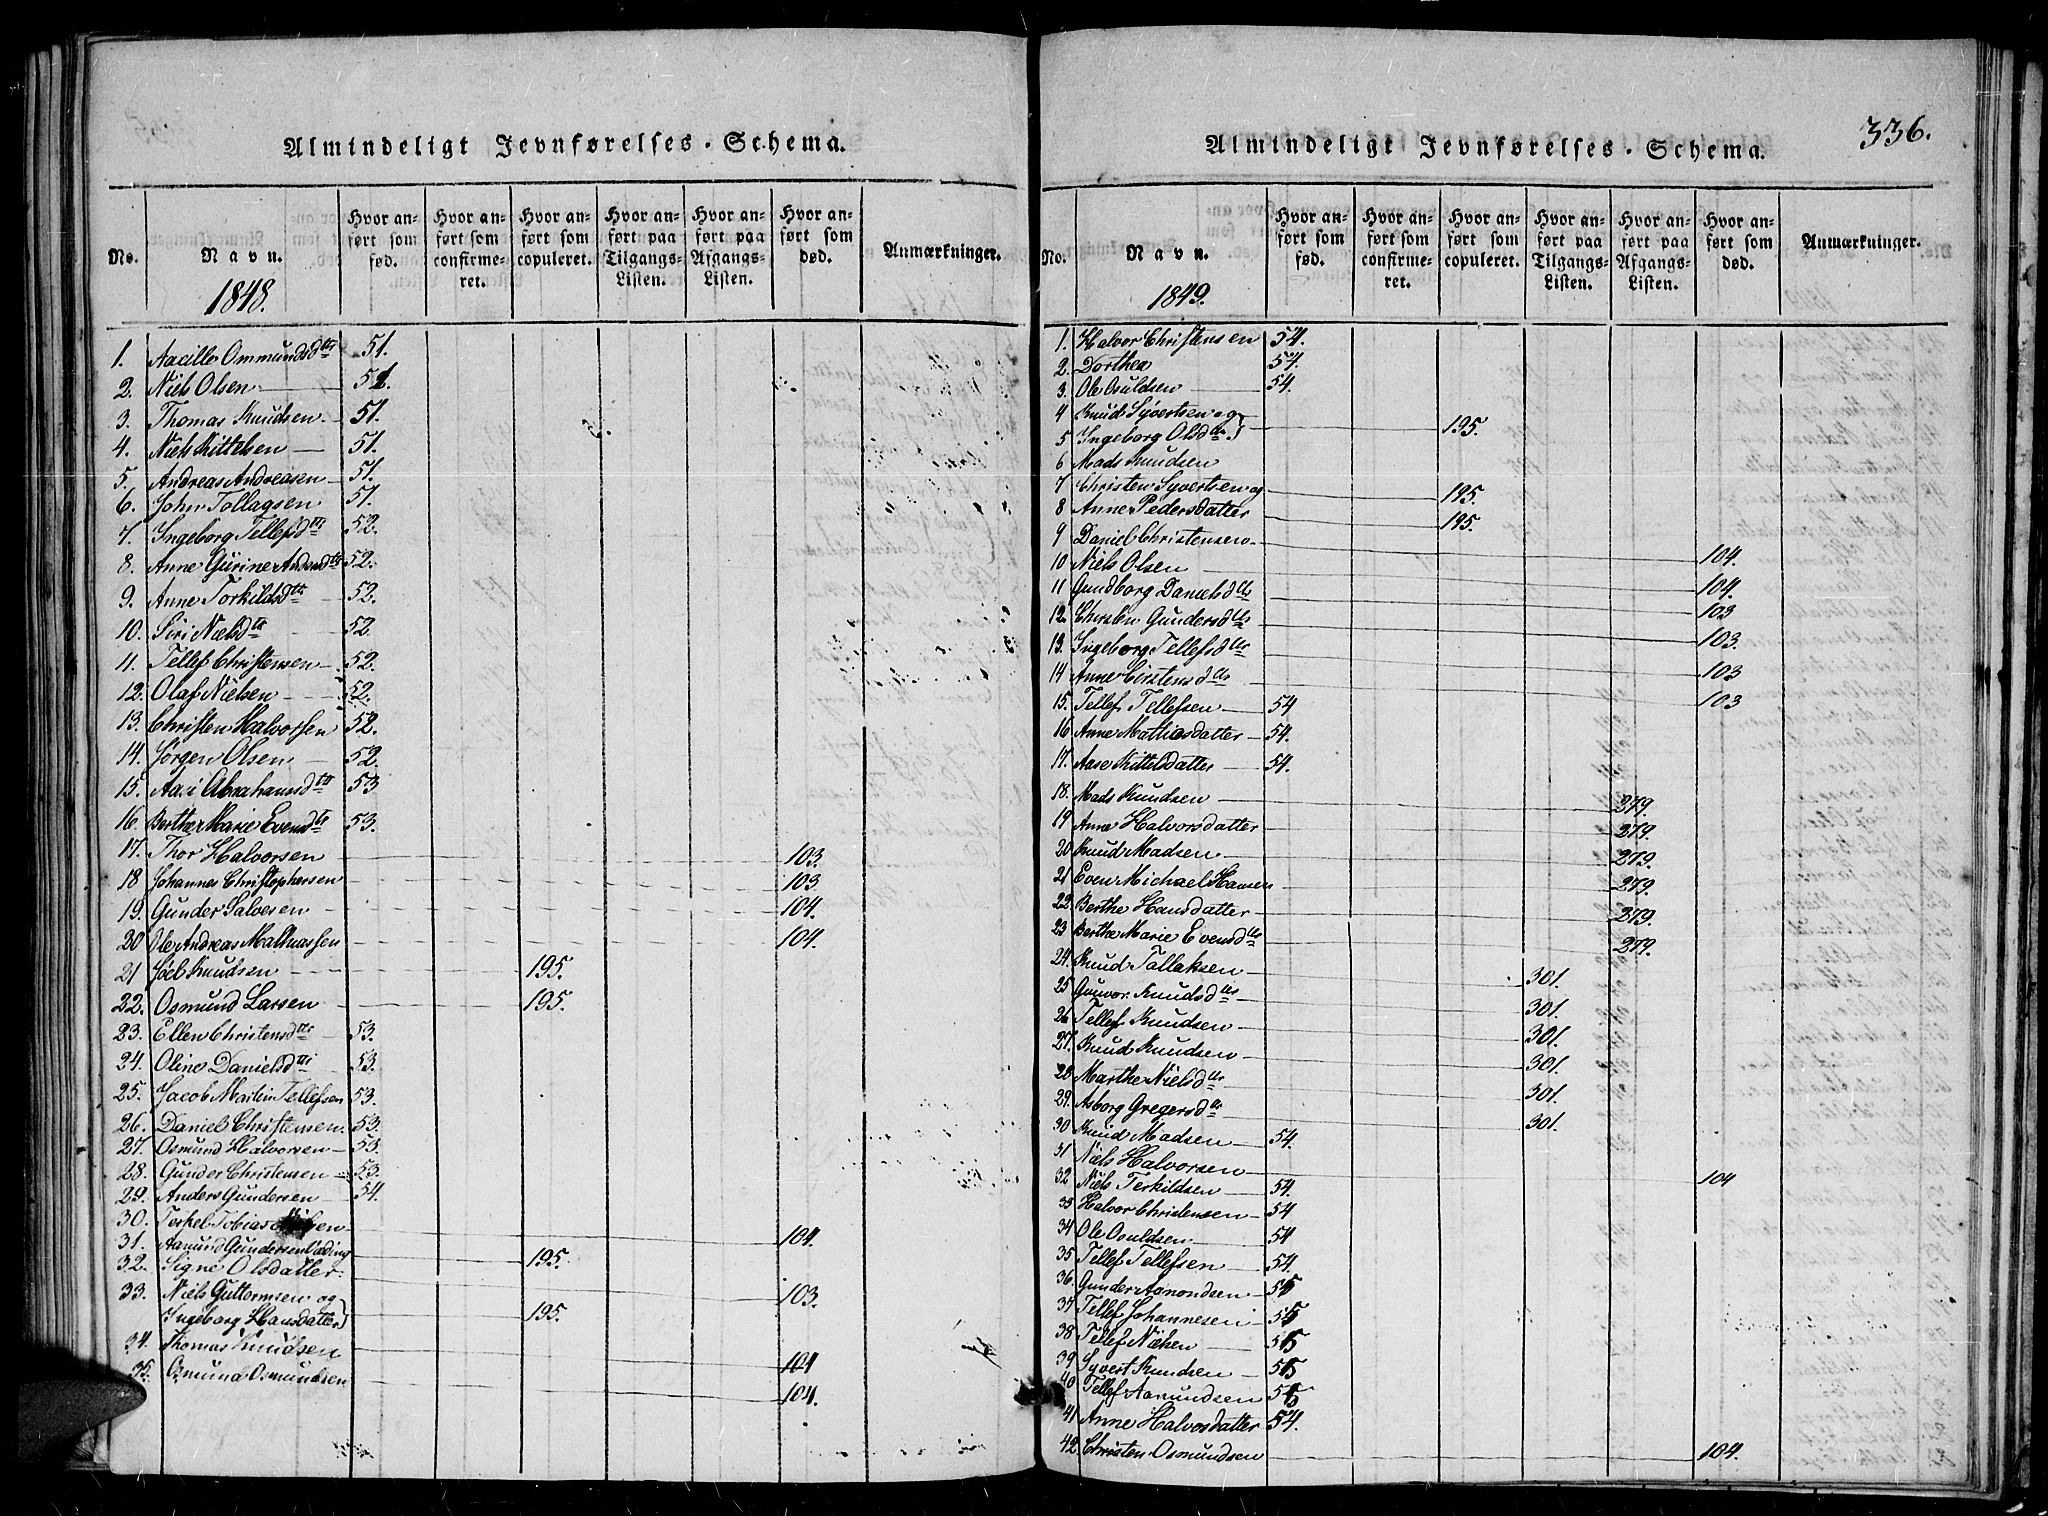 Almindeligt Jevnførelses-Schema.
No. Navn. Hvor anført som fød. Hvor anført som confirmeret. Hvor anført som copuleret. Hvor anført paa Tilgangs-Listen. Hvor anført paa Afgangs-Listen. Hvor anført som død. Anmærkninger.
1848.
1. Aacille Ommundsdtr 51.
2. Niels Olsen 51.
3. Thomas Knudsen 51.
4. Niels Kittelsen 51.
5. Andreas Andreasen 51.
6. Joher Tollagsen 51.
7. Ingeborg Tellefsdtr 52.
8. Anne Gurine Andersdtr 52.
9. Anne Torkildsdtr 52.
10. Siri Nielsdtr 52.
11. Tellef Christensen 52.
12. Olaf Nielsen 52.
13. Christen Halvorsen 52.
14. Jørgen Olsen 52.
15. Abrahamsdtr 53
16. Berthe Marie Evensdtr 53.
17. Thor Halvorsen 103.
18 Johannes Christophersen 103.
19. Gunder Salvesen 104.
20 Ole Andreas Mathiassen 104.
21 Joel Knudsen 195.
22. Osmund Larsen 195.
23. Ellen Christensdtr 53.
24. Oline Danielsdtr 53.
25. Jacob Martin Tellefsen 53.
26. Daniel Christensen 53.
27. Osmund Halvorsen 53.
28. Gunder Christensen 53.
29. Anders Gundersen 54.
30. Terkel Tobias 104.
31. Aamund Gundersen 195.
32. Signe Olsdatter
33. Niels Guttormsen og 103.
Ingeborg Hansdatter 195.
34. Thomas Knudsen 104
35. Osmund Osmundsen 104.
Almindeligt Jevnførelses-Schema.
336.
No. Navn. Hvor anført som fød. Hvor anført som confirmeret. Hvor anført som copuleret. Hvor anført paa Tilgangs-Listen. Hvor anført paa Afgangs-Listen. Hvor anført som død. Anmærkninger.
1849.
1. Halvor Christensen 54.
2. Dorthea 54.
3. Ole Osuldsen 54.
4 Knud Syvertsen og
5 Ingeborg Olsdtr 195.
6 Mads Knudsen
7 Christen Syvertsen og 195.
8 Anne Pedersdatter 195.
9 Daniel Christensen
10 Niels Olsen 104.
11 Gundborg Danielsdtr 104.
12. Christen Gundersdtr 103
13. Ingeborg Tellefsdtr 103.
14 Anne Cirstensdtr 103
15. Tellef Tellefsen 54 103
16 Anne Mathiasdatter 54.
17. Aase Kittelsdatter 54.
18. Mads Knudsen 279.
19 Anne Halvorsdatter 279.
20 Knud Madsen 279.
21 Even Michael Hansen 279.
22 Berthe Hansdatter 279
23 Berthe Marie Evensdtr 279.
24. Knud Tallaksen 301.
25 Gunvor Knudsdtr 301.
26 Tellef Knudsen 301.
27. Knud Knudsen 301.
28 Marthe Nielsdtr 301.
29. Asborg Gregersdtr 301.
30 Knud Madsen 54.
31 Niels Halvorsen 104
32 Niels Terkildsen 54.
33 Halvor Christensen 54
34 Ole Osuldsen 54
35 Tellef Tellefsen 54.
36. Gunder Aamondsen 55
37 Tellef Johannesen 55
38 Tellef Nielsen 55
39 Syvert Knudsen 55
40 Tellef Aamundsen 55
41 Anne Halvorsdatter 54.
42 Christen Osmundsen 104.